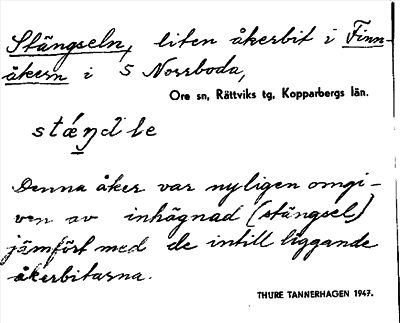 Stängseln, liten åkerbit i Finn-
åkern i S Norrboda,
Ore sn, Rättviks tg, Kopparbergs län.
stæŋdle
Denna åker var nyligen omgi-
ven av inhägnad (stängsel)
jämfört med de intill liggande
åkerbitarna.
THURE TANNERHAGEN 1947.